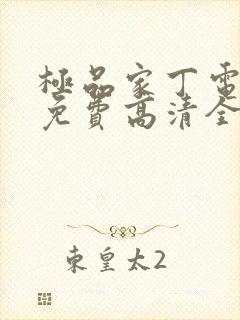 極品家丁電
免費高清全
東皇太2